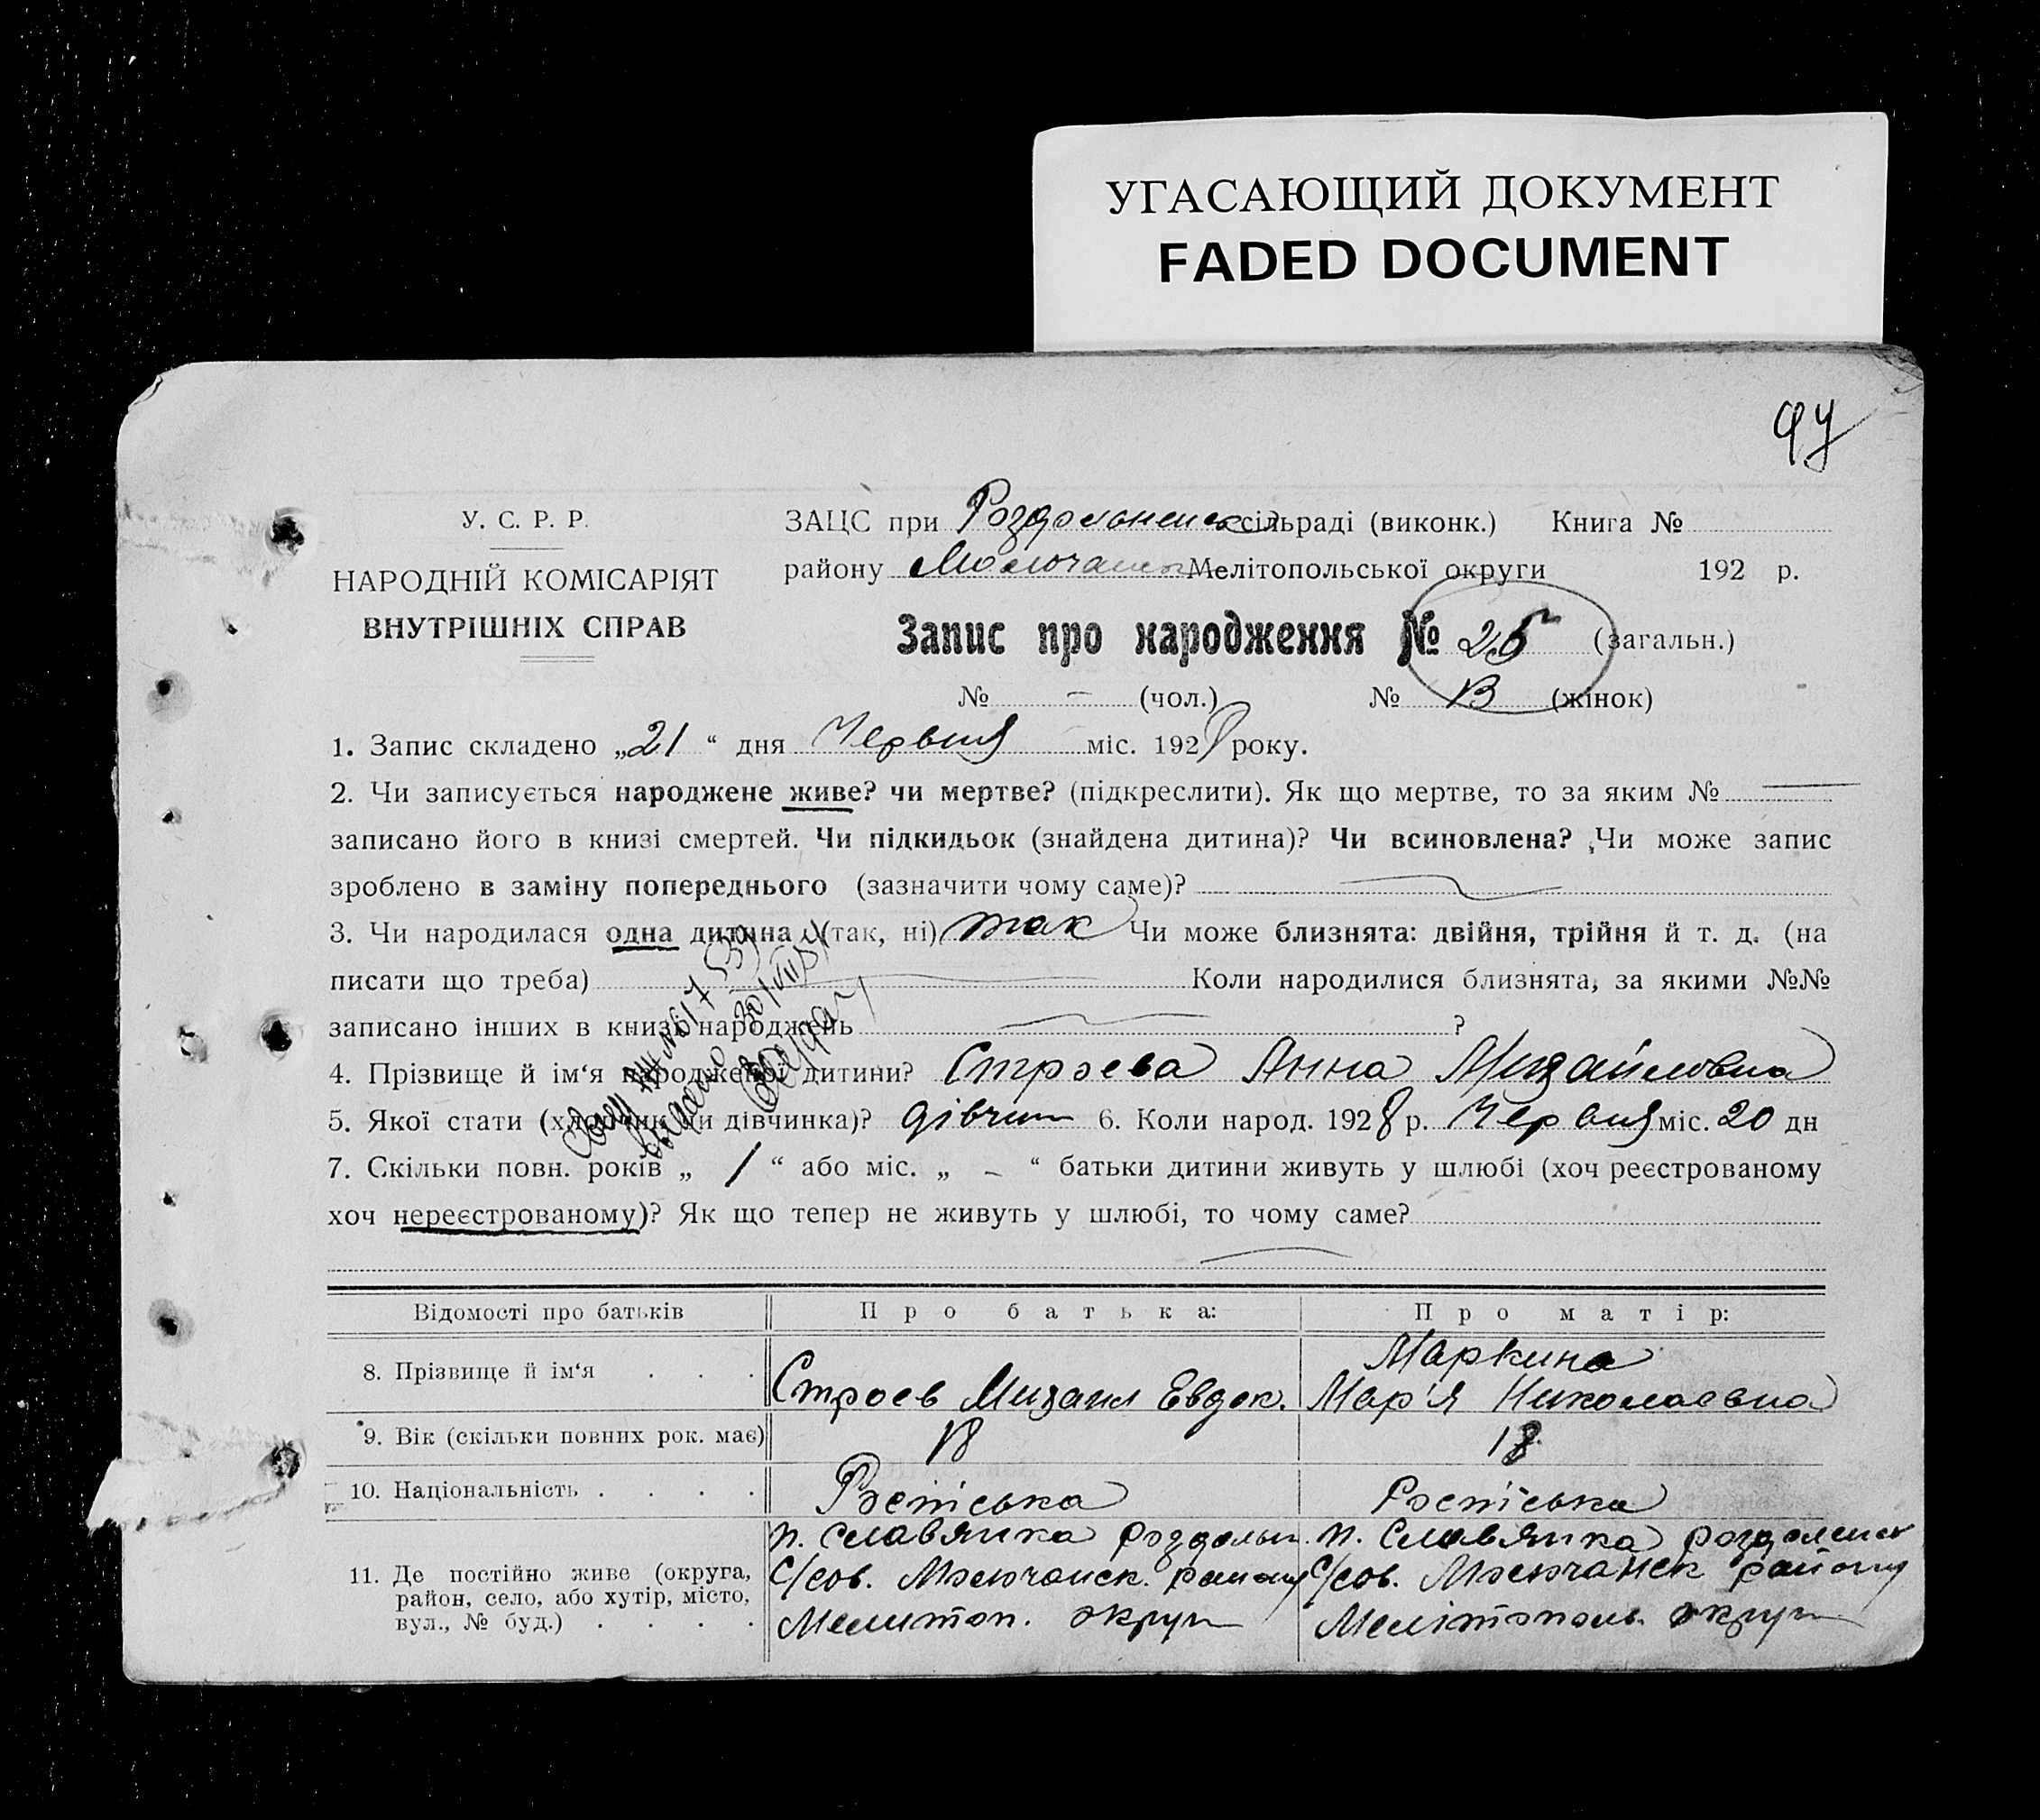 УГАСАЮЩИЙ ДОКУМЕНТ
FADED DOCUMENT
У. С. Р. Р.
НАРОДНІЙ КОМІСАРІЯТ
ВНУТРІШНІХ СПРАВ
ЗАЦС при Роздольненск сільраді (виконк.) Книга №
району Молочанск Мелітопольської округи 192 р.
Запис про народження № 25 (загальн.)
№ – (чол.) № 13 (жінок)
1. Запис складено „21“ дня Червня міс. 1928 року.
2. Чи записується народжене живе? чи мертве? (підкреслити). Як що мертве, то за яким №
записано його в книзі смертей. Чи підкидьок (знайдена дитина)? Чи всиновлена? Чи може запис
зроблено в заміну попереднього (зазначити чому саме)?
3. Чи народилася одна дитина (так, ні) так Чи може близнята: двійня, трійня й т. д. (на
писати що треба) Коли народилися близнята, за якими №№
записано інших в книзі народжень ?
4. Прізвище й ім‘я народженої дитини? Строева Анна Михайловна
5. Якої стати (хлопчик чи дівчинка)? дівчин 6. Коли народ. 1928 р. Червня міс. 20 дн
7. Скільки повн. років „ 1 “ або міс. „ – “ батьки дитини живуть у шлюбі (хоч реєстрованому
хоч нереєстрованому)? Як що тепер не живуть у шлюбі, то чому саме?
Відомості про батьків Про батька: Про матір:
8. Прізвище й ім‘я . . . Строев Михаил Евдок. Маркина
Мар'я Николаевна
9. Вік (скільки повних рок. має) 18 18
10. Національність . . . . Росіиська Росіиська
11. Де постійно живе (округа,
район, село, або хутір, місто,
вул., № буд.) . . . .
п. Славянка Роздольн.
С/сов. Молочанск. району
Мелитоп. округи
п. Славянка роздоленск
С/сов. Молочанск району
Мелітополь. округи